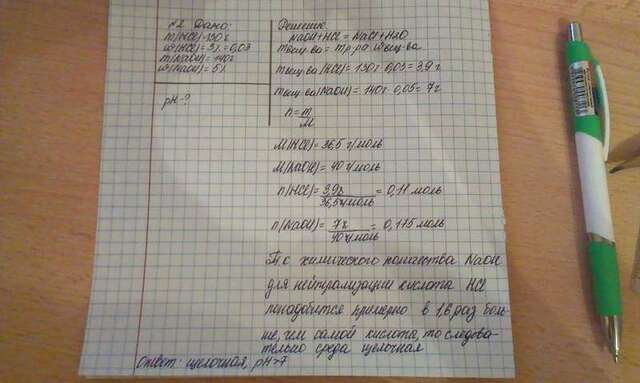 №2 Дано:
m(HCl)=130г
w(HCl)=3%=0,03
m(NaOH)=140г
w(NaOH)=5%
pH-?
Решение
NaOH+HCl=NaCl+H2O
mвещ-ва=mр-ра·wвещ-ва
mвещ-ва(HCl)=130г·0,03=3,9г
mвещ-ва(NaOH)=140г·0,05=7г
n=m/M
M(HCl)=36,5г/моль
M(NaOH)=40г/моль
n(HCl)=3,9г/36,5г/моль=0,11моль
n(NaOH)=7г/40г/моль=0,175моль
Т.о химического количества NaOH
для нейтрализации кислота HCl
понадобится примерно в 1,6 раз боль-
ше, чем самой кислота, то следова-
тельно среда щелочная
Ответ: щелочная, pH>7